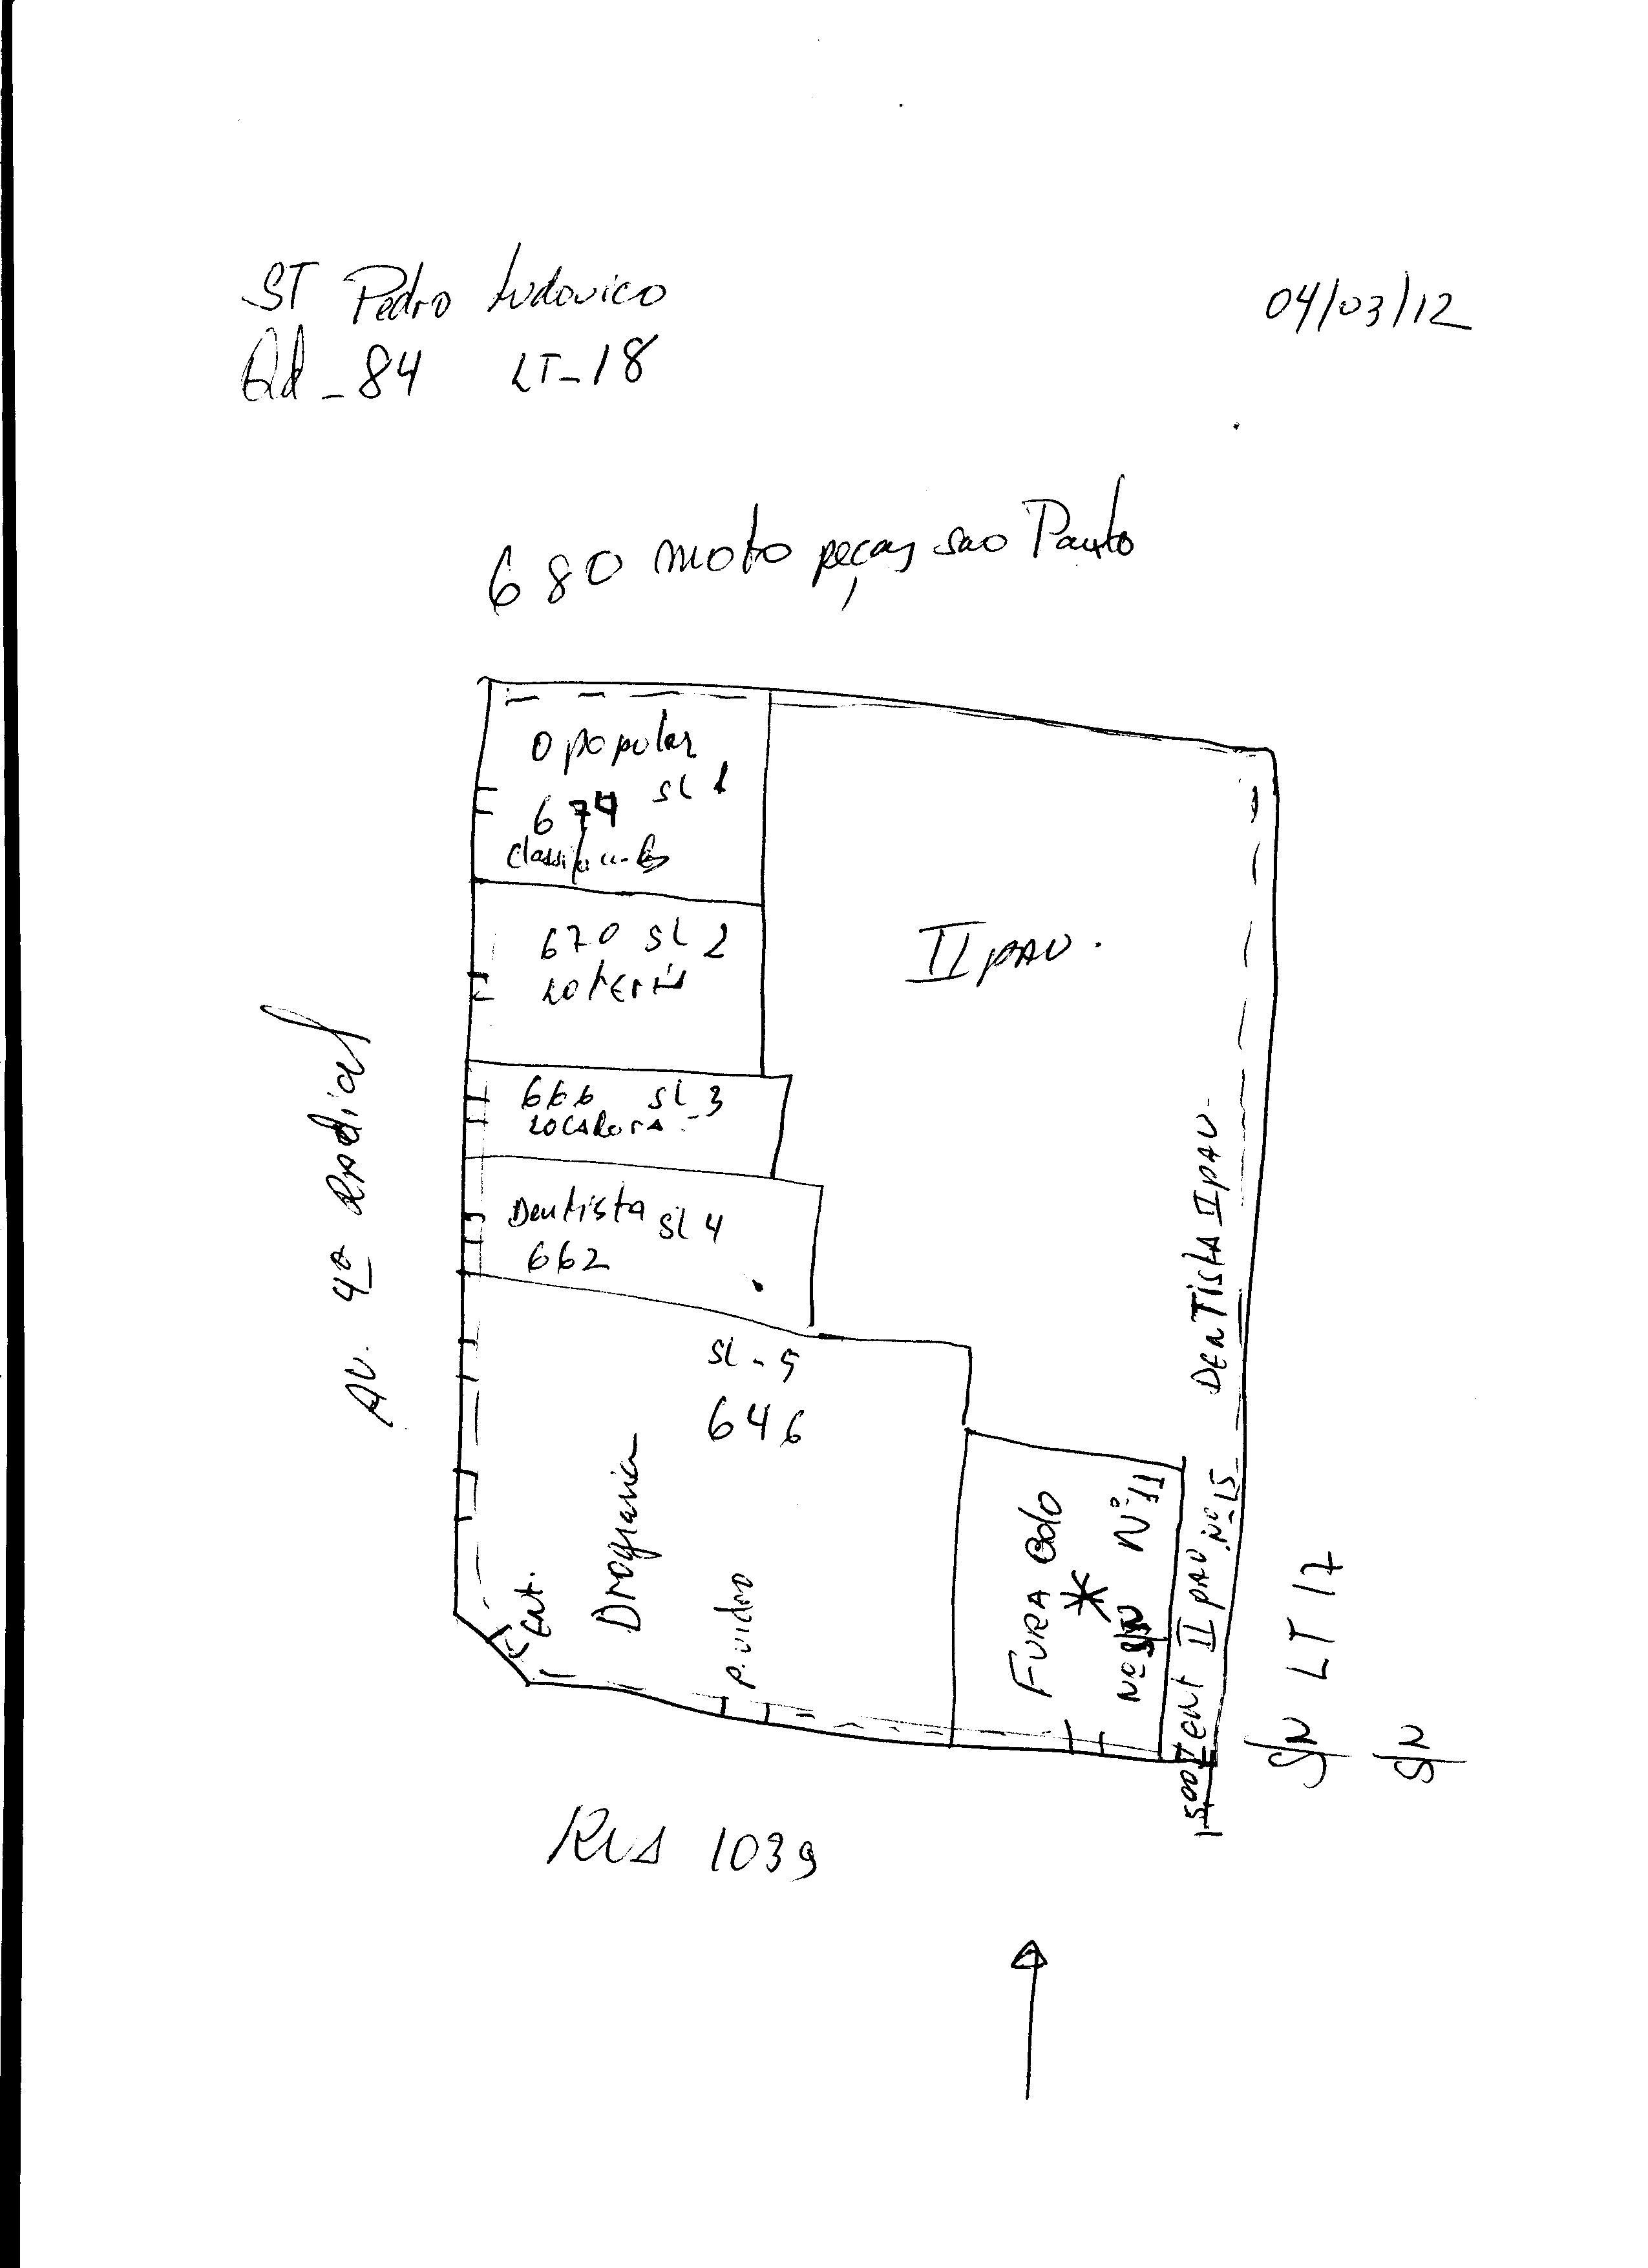 ST Pedro Ludovico
04/03/12
Qd - 84 LT - 18
680 moto peças sao Paulo
O popular
674 SL 1
670 SL 2
Loteria
II pAV.
666 SL 3
LOCADORA -
Dentista SL 4
662
SL - 5
646
AV. 4ª Radial
Drogaria
Ent.
p. vidro
FURA Bolo
Nº S/N Nº 11
DENTISTA II pAV.
ENT II pAV Nº 15
1500
S/N LT 17
S/N
RUA 1039